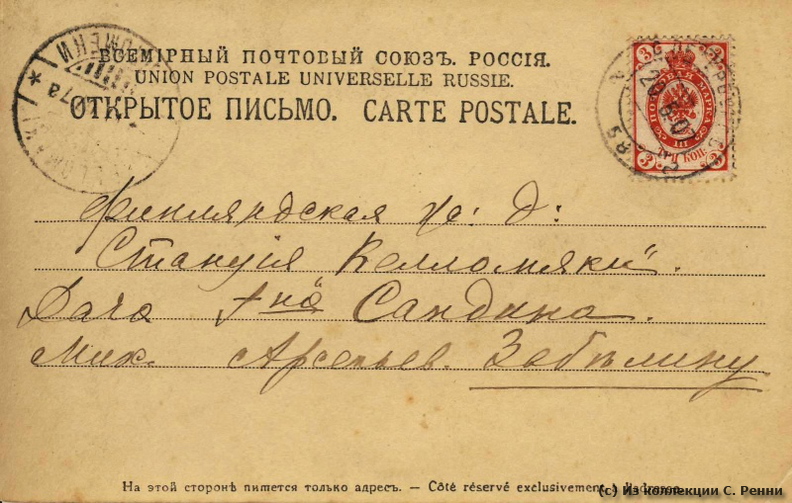 ВСЕМІРНЫЙ ПОЧТОВЫЙ СОЮЗЪ. РОССІЯ.
UNION POSTALE UNIVERSELLE RUSSIE.
ОТКРЫТОЕ ПИСЬМО. CARTE POSTALE.
ПОЧТОВАЯ МАРКА
3 ТРИ КОП. 3
Финляндская ж: д:
Станція Келломяки.
Дача Г-на Сандина.
Мих. Арсеньев. Забѣлину
На этой сторонѣ пишется только адресъ. — Côté réservé exclusivement à l'adresse.
(c) Из коллекции С. Ренни